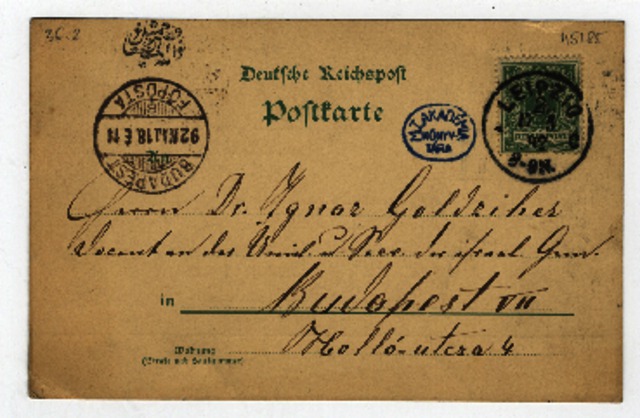 36-2
Deutsche Reichspost
Postkarte
BUDAPEST FŐPOSTA
92
M.T.AKADÉMIA
KÖNYV-
TÁRA
LEIPZIG
92
8-9N.
Herrn Dr. Ignaz Goldziher
Docent an der Univ. u Secr. der israel Gem.
in Budapest VII
Holló-utcza 4
Wohnung
(Straße und Hausnummer)